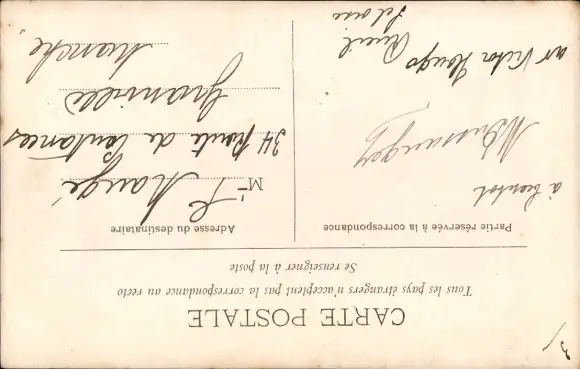 CARTE POSTALE
Tous les pays étrangers n'acceptent pas la correspondance au recto
Se renseigner à la poste
Partie réservée à la correspondance
à bientôt
av Victor Hugo
Rueil
Adresse du destinataire
M
Maugé
34 route de Coutances
Granville
Manche